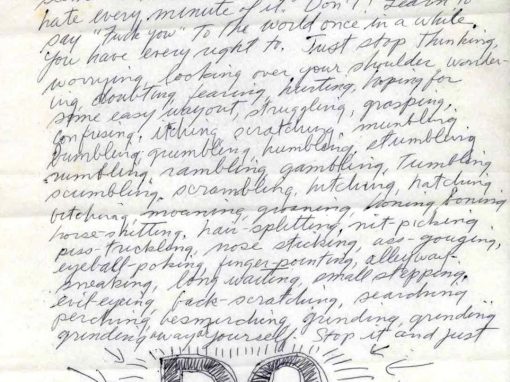 hate every minute of it. Don't! Learn to
say "Fuck you" to the world once in a while.
You have every right to. Just stop thinking,
worrying, looking over your shoulder, wonder-
ing, doubting, fearing, hurting, hoping for
some easy way out, struggling, grasping,
confusing, itching, scratching, mumbling
bumbling, grumbling, humbling, stumbling
rumbling, rambling, gambling, tumbling
scumbling, scrambling, hitching, hatching
bitching, moaning, groaning, honing, boning
horse-shitting, hair-splitting, nit-picking
piss-trickling, nose sticking, ass-gouging,
eyeball-poking, finger-pointing, alleyway-
sneaking, long waiting, small stepping,
evil-eyeing, back-scratching, searching
perching, besmirching, grinding, grinding
grinding away at yourself. Stop it and just
DO